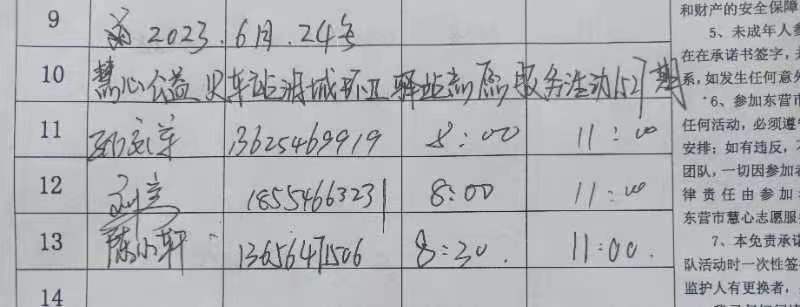 9 2023.6月.24号
10 慧心公益火车站润城环卫驿站志愿服务活动152期
11 13625469919 8:00 11:00
12 刘 18554663231 8:00 11:00
13 陈小轩 13656471506 8:30. 11:00.
14
和财产的安全保障
5、未成年人参
在在承诺书签字,
系,如发生任何意外
6、参加东营市
任何活动,必须遵
安排;如有违反,
团队,一切因参加
律责任由参加
东营市慧心志愿服
7、本免责承诺
队活动时一次性签
监护人有更换者,